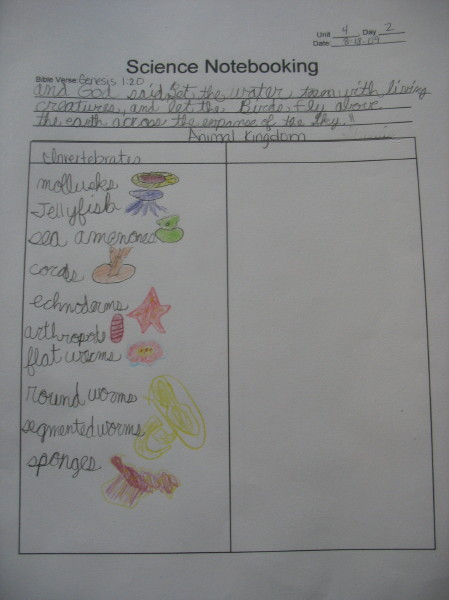 Unit 4, Day 2
Date
Science Notebooking
Bible Verse: Genesis 1:20
and God said, Let the water teem with living
creatures, and let the Birds fly above
the earth across the expanse of the sky."
Animal Kingdom
Invertebrates
mollusks
Jellyfish
sea amenones
corals
echnoderms
arthropods
flat worms
round worms
segmented worms
sponges